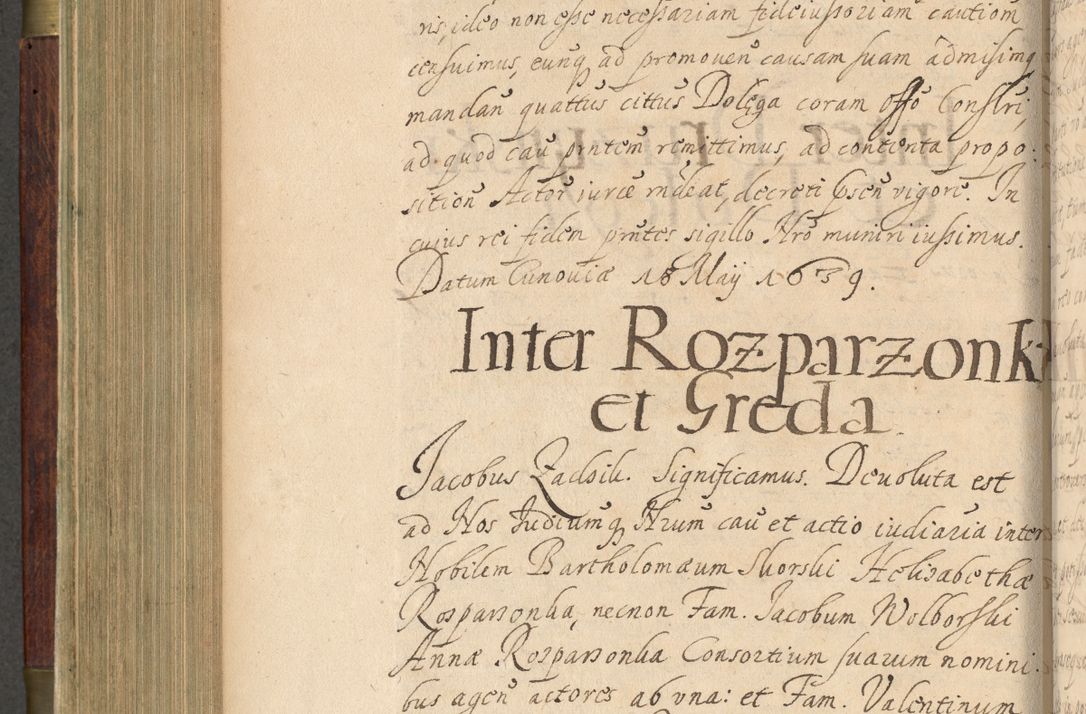 ris, ideo non esse necessariam fideiussoriam cautiom̃
censuimus, eunq ad promoven̄ causam suam admisimq
mandan̄ quattūs cittūs Dolęga coram offō Constri,
ad quod cau p̄ntem remittimus, ad contenta propo:
sition̄ Actor iurce rn̄deat, decreti p̄sen̄ vigore. In
cuius rei fidem p̄ntes sigillo Nrō muniri iussimus.
Datum Cunoviæ 18 Maij 1639.
Inter Rozparzonk
et Greda
Jacobus Zadsik. Significamus. Devoluta est
ad Nos Judiumq Nrum cau et actio iudiaria inter
Nobilem Bartholomæum Skorski Helisabethæ
Rosparsonka, necnon Fam. Jacobum Wolborski
Annæ Rosparsonka Consortium suarum nomini:
bus agen̄ actores ab vna: et Fam. Valentinum